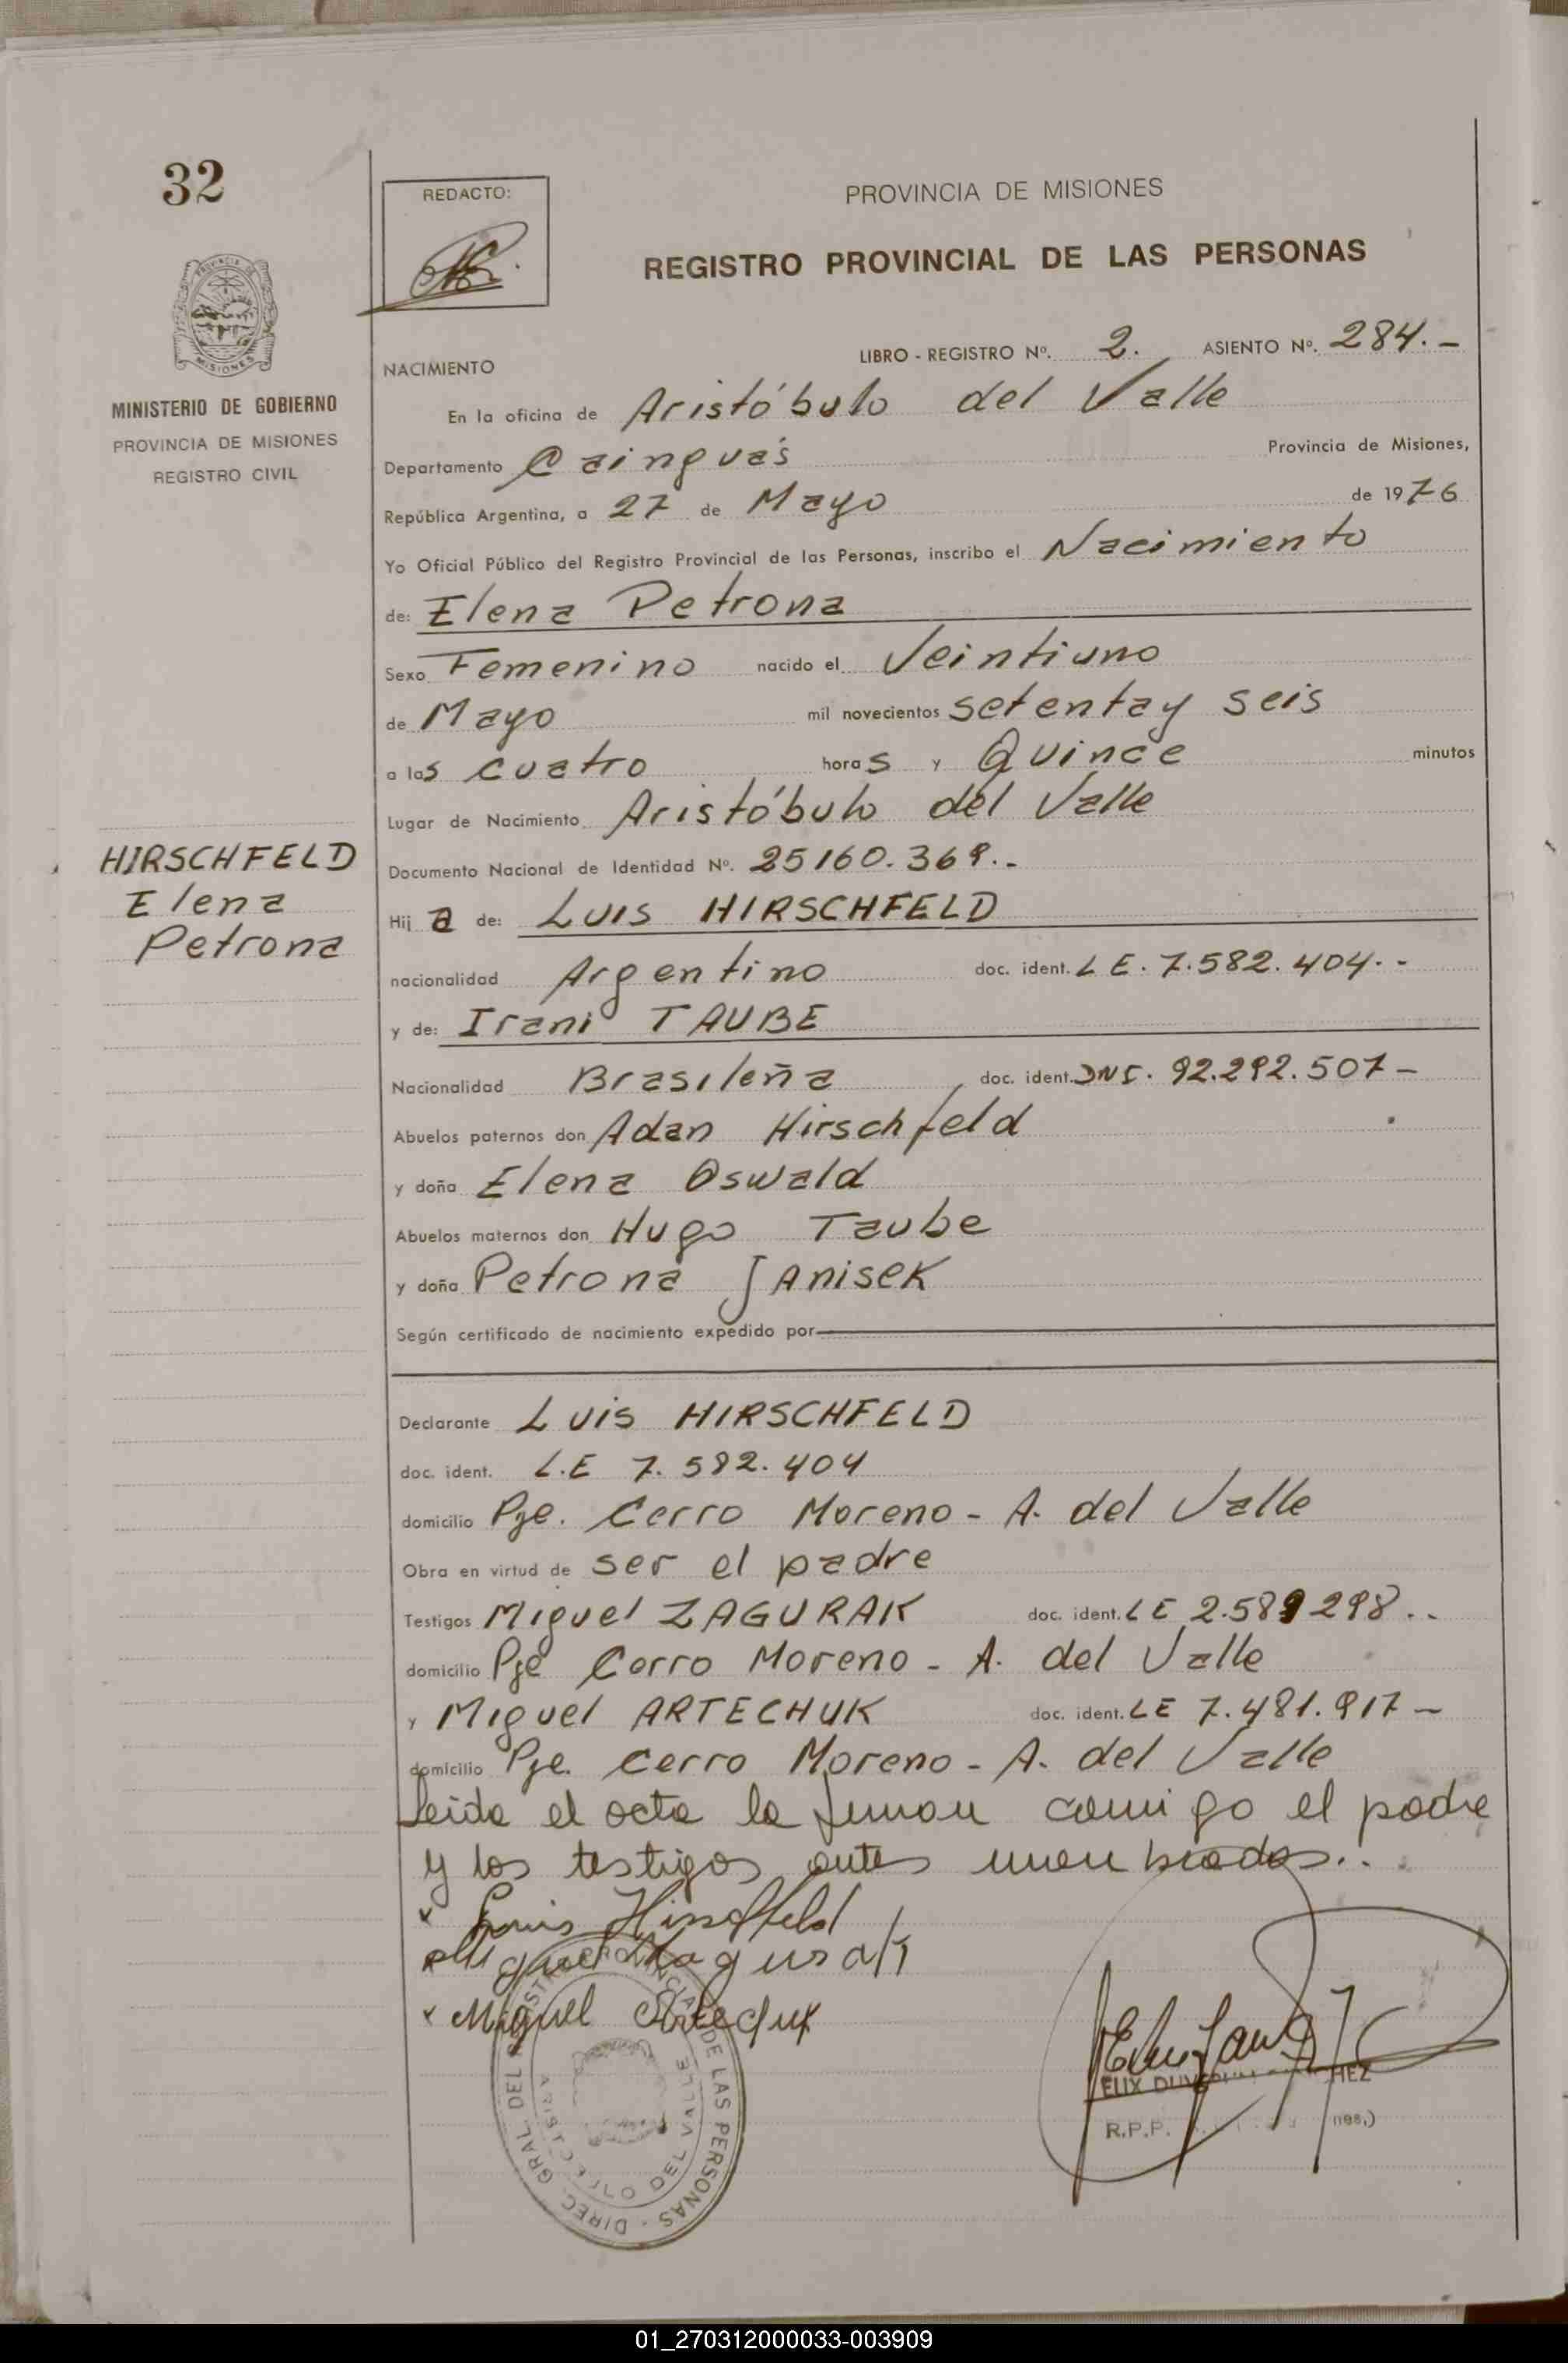 32
REDACTO:
PROVINCIA DE MISIONES
REGISTRO PROVINCIAL DE LAS PERSONAS
PROVINCIA DE
MISIONES
MINISTERIO DE GOBIERNO
PROVINCIA DE MISIONES
REGISTRO CIVIL
NACIMIENTO
LIBRO - REGISTRO Nº. 2. ASIENTO Nº. 284.-
En la oficina de Aristóbulo del Valle
Departamento Cainguás Provincia de Misiones,
República Argentina, a 27 de Mayo de 1976
Yo Oficial Público del Registro Provincial de las Personas, inscribo el Nacimiento
de: Elena Petrona
Sexo Femenino nacido el Veintiuno
de Mayo mil novecientos setentay seis
a las cuatro horas y Quince minutos
Lugar de Nacimiento Aristóbulo del Valle
HIRSCHFELD
Elena
Petrona
Documento Nacional de Identidad Nº. 25160.369.-
Hija de: Luis HIRSCHFELD
nacionalidad Argentino doc. ident. LE. 7.582.404.-
y de: Irani TAUBE
Nacionalidad Brasileña doc. ident. DNI. 92.292.507-
Abuelos paternos don Adan Hirschfeld
y doña Elena Oswald
Abuelos maternos don Hugo Taube
y doña Petrona JANISEK
Según certificado de nacimiento expedido por
Declarante Luis HIRSCHFELD
doc. ident. L.E 7.582.404
domicilio Pje. Cerro Moreno - A. del Valle
Obra en virtud de ser el padre
Testigos Miguel ZAGURAK doc. ident. LE 2.589298..
domicilio Pje Cerro Moreno - A. del Valle
y Miguel ARTECHUK doc. ident. LE 7.481.917-
domicilio Pje. Cerro Moreno - A. del Valle
Leida el acta la firman comigo el padre
y los testigos antes mencionados..
x Luis Hirschfeld
Miguel Zagurak
x Miguel
R.P.P.
DIREC. GRAL DEL REGISTRO PROVINCIAL DE LAS PERSONAS
ARISTOBULO DEL VALLE
01_270312000033-003909